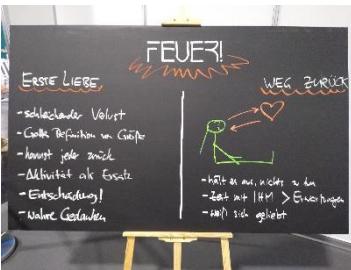 FEUER!
ERSTE LIEBE
- schleichender Verlust
- Gottes Definition von Größe
- kommst jeder zurück
- Aktivität als Ersatz
- Entscheidung!
- wahre Gedanken
WEG ZURÜCK
- hält es aus, nichts zu tun
- Zeit mit IHM > Erwartungen
- weiß sich geliebt